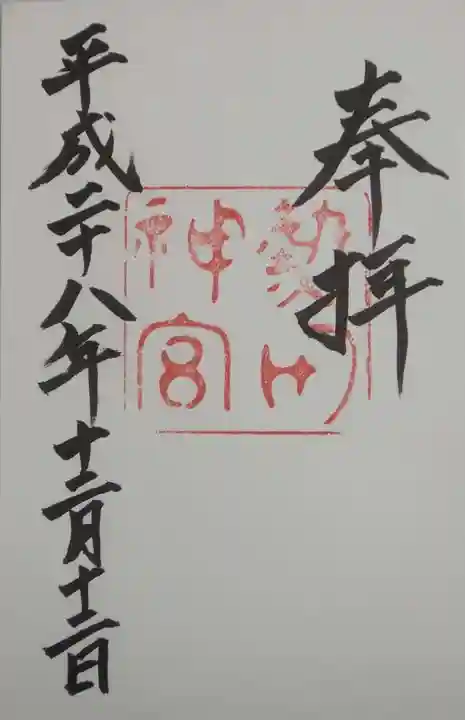 奉拝
熱田神宮
平成二十八年十二月十二日